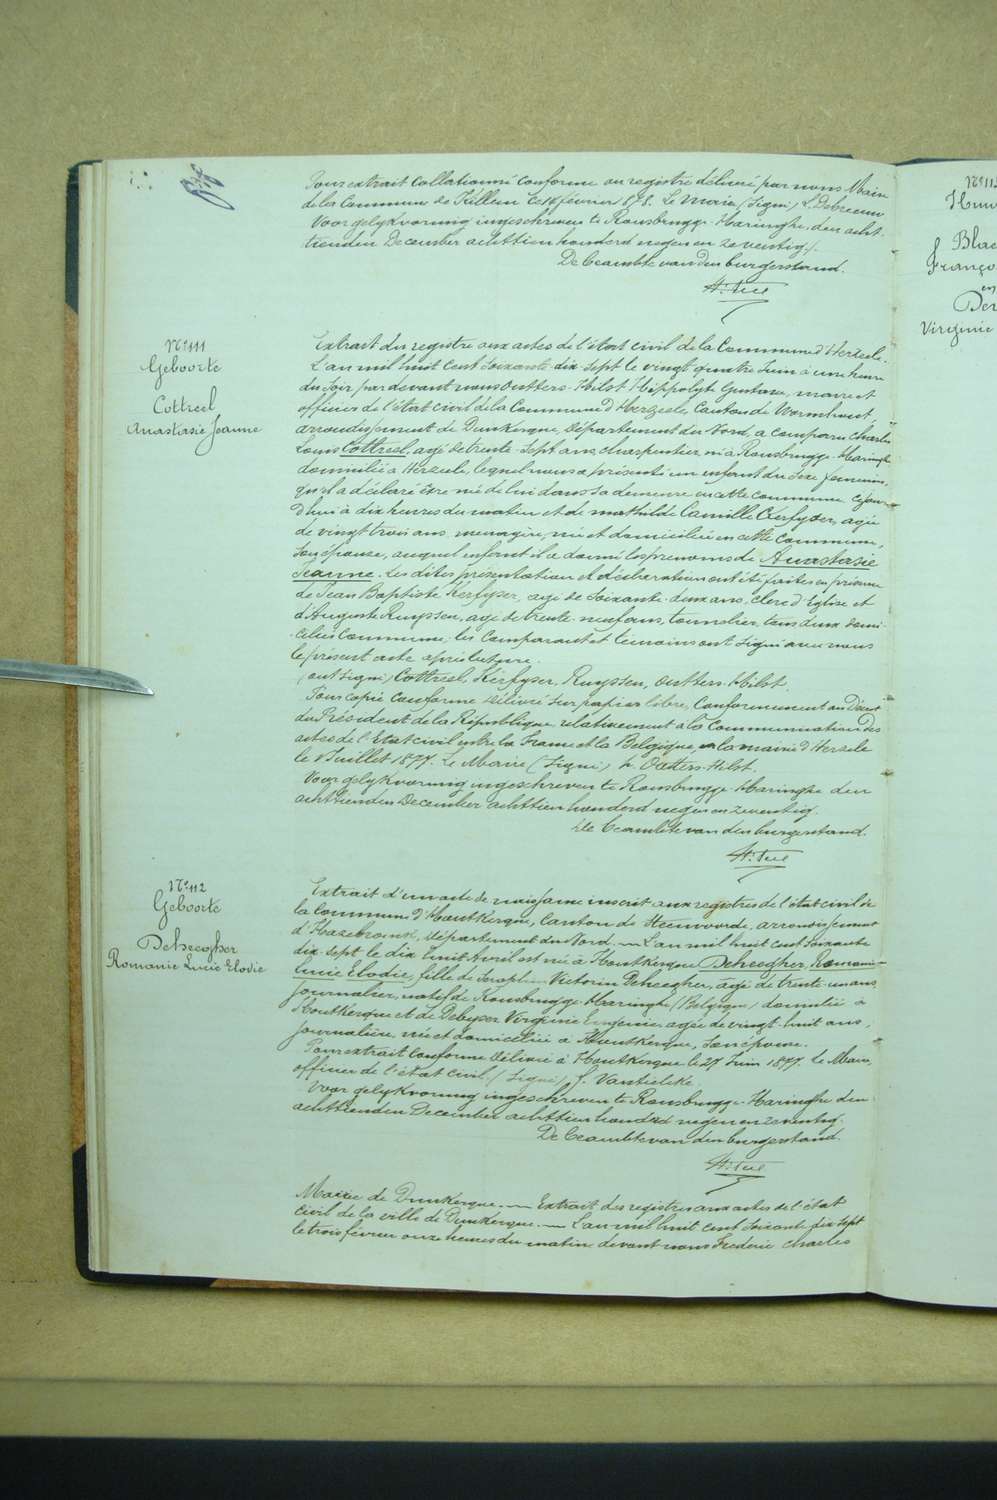 Pour extrait Collationné conforme au registre délivré par nous Maire
de la Commune de Killem ce 18 février 1878. Le Maire (Signé) L. Debreeuw
Voor gelykvormig ingeschreven te Rousbrugge-Haringhe, den acht-
tienden December achttien honderd negen en zeventig.
De Beambte van den burgerstand.
Nº 111
Geboorte
Cottreel
Anastasie Jeanne
Extrait du registre aux actes de l'état civil de la Commune d'Herzeele.
L'an mil huit cent soixante-dix-sept le vingt quatre Juin à une heure
du soir par devant nous Outters-Hilst Hippolyte Gustave, maire et
officier de l'état civil de la Commune d'Herzeele, Canton de Wormhoudt
arrondissement de Dunkerque, Département du Nord, a comparu Charles
Louis Cottreel, agé de trente-sept ans, charpentier, né à Rousbrugge-Haringhe
domicilié à Herzeele, lequel nous a présenté un enfant du sexe féminin,
qu'il a déclaré être né de lui dans sa demeure en cette commune cejour-
d'hui à dix heures du matin et de Mathilde Camille Kerfyser, agée
de vingt trois ans, menagère, née et domiciliée en cette Commune,
son épouse, auquel enfant il a donné les prenoms de Anastasie
Jeanne. Les dites présentation et déclaration ont été faites en présence
de Jean Baptiste Kerfyser, agé de soixante-deux ans, clerc d'Eglise et
d'Auguste Ruyssen, agé de trente-neuf ans, tonnelier, tous deux domi-
ciliés Commune, les Comparant et témoins ont signé avec nous
le présent acte après lecture.
(ont signé) Cottreel, Kerfyser, Ruyssen, Outters-Hilst
Pour copie Conforme Délivré sur papier libre, Conformement au Décret
du Président de la République relativement à la Communication des
actes de l'Etat civil entre la France et la Belgique, en la mairie d'Herzeele
le Juillet 1877. Le Maire (Signé) h. Outters-Hilst.
Voor gelykvormig ingeschreven te Rousbrugge-Haringhe den
achttienden December achttien honderd negen en zeventig.
De Beambte van den burgerstand.
Nº 112
Geboorte
Deheegher
Romanie Lucie Elodie
Extrait d'un acte de naissance inscrit aux registres de l'état civil de
la Commune d'Houtkerque, Canton de Steenvoorde, arrondissement
d'Hazebrouck, département du Nord. L'an mil huit cent soixante
dix-sept le dix huit Avril est née à Houtkerque Deheegher, Romanie
Lucie Elodie, fille de Seraphin Victorin Deheegher, agé de trente-un ans
journalier, natif de Rousbrugge-Haringhe (Belgique) domicilié à
Houtkerque et de Debyser Virginie Eugenie, agée de vingt-huit ans,
journalière, née et domiciliée à Houtkerque, son épouse.
Pour extrait Conforme Délivré à Houtkerque le 27 Juin 1877. Le Maire,
officier de l'état civil (Signé)
Voor gelykvormig ingeschreven te Rousbrugge-Haringhe den
achttienden December achttien honderd negen en zeventig.
De Beambte van den burgerstand.
Mairie de Dunkerque. Extrait des registres aux actes de l'état
civil de la ville de Dunkerque. L'an mil huit cent soixante dix sept
le trois février onze heures du matin devant nous Frederic Charles
Blae
Franço
en
Virginie